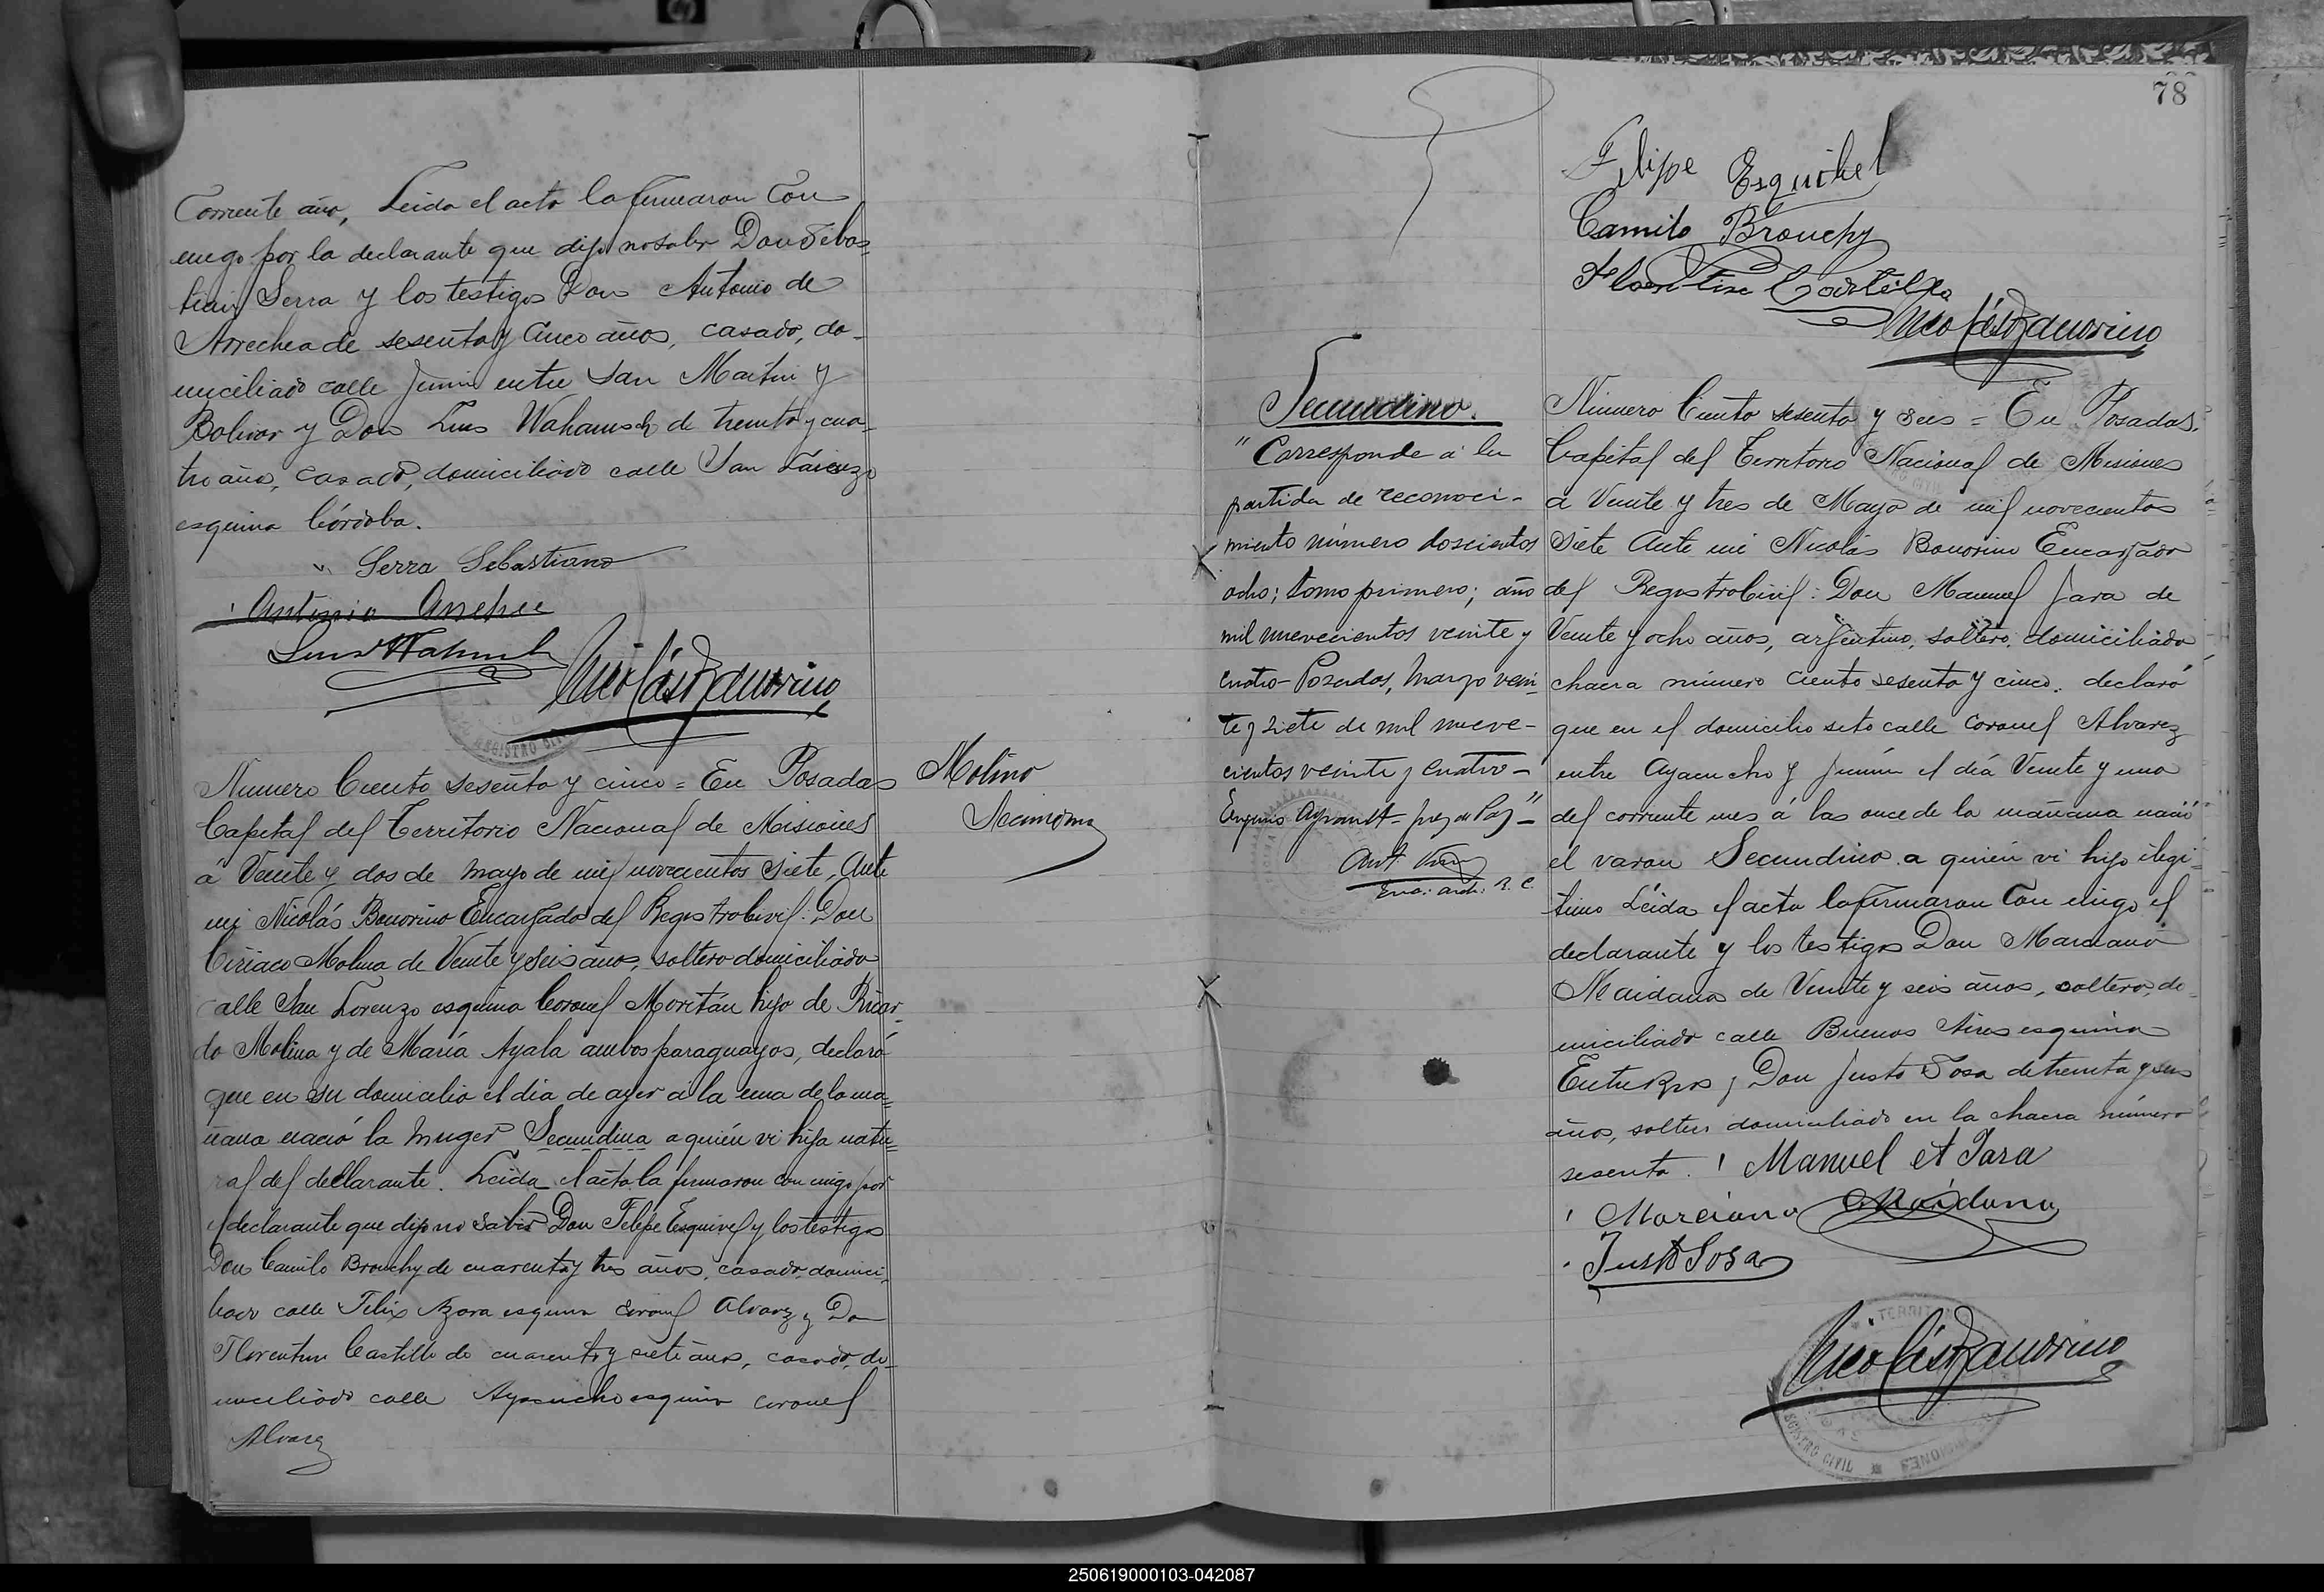 Corriente año, Leida el acta la firmaron con
migo por la declarante que dijo no saber Don Sebas=
tian Serra y los testigos Don Antonio de
Arrechea de sesenta y cinco años, casado, do-
miciliado calle Junin entre San Martin y
Bolivar y Don Luis de treinta y cua-
tro años, casado, domiciliado calle San Lorenzo
esquina Córdoba.
Serra Sebastiano
Antonio Arrechea
Luis
Nicolás Bonorino
Numero Ciento sesenta y cinco = En Posadas
Capital del Territorio Nacional de Misiones
á Veinte y dos de mayo de mil novecientos siete, Ante
mi Nicolás Bonorino Encargado del Registro Civil: Don
Ciriaco Molina de Veinte y seis años, soltero domiciliado
calle San Lorenzo esquina Coronel Moritán hijo de Ricar-
do Molina y de María Ayala ambos paraguayos, declaró
que en su domicilio el dia de ayer á la una de la ma=
ñana nació la muger Secundina a quién vi hija natu=
ral del declarante. Leida el acta la firmaron con migo por
el declarante que dijo no saber Don Felipe Esquivel y los testigos
Don Camilo Brouchy de cuarenta y tres años, casado, domici-
liado calle Felix Azara esquina Coronel Alvarez y Don
Florentin Castillo de cuarenta y siete años, casado, do-
miciliado calle Ayacucho esquina Coronel
Alvarez
Molino
78
Felipe Esquibel
Camilo Brouchy
Nicolás Bonorino
Secundino.
"Corresponde á la
partida de reconoci-
miento número doscientos
ocho; tomo primero; año
mil nuevecientos veinte y
cuatro - Posadas, Marzo vein-
te y siete de mil nueve-
cientos veinte y cuatro -
Juez de Paz" -
Enc: arch: R. C.
Número Ciento sesenta y seis = En Posadas,
Capital del Territorio Nacional de Misiones
a Veinte y tres de Mayo de mil novecientos
siete Ante mi Nicolás Bonorino Encargado
del Registro Civil: Don Manuel Jara de
Veinte y ocho años, argentino, soltero, domiciliado
chacra número ciento sesenta y cinco, declaró
que en el domicilio sito calle Coronel Alvarez
entre Ayacucho y Junín el día Veinte y uno
del corriente mes á las once de la mañana nació
el varon Secundino a quién vi hijo ilegi=
timo Leida el acta la firmaron con migo el
declarante y los testigos Don Marciano
Maidana de Veinte y seis años, soltero, do-
miciliado calle Buenos Aires esquina
Entre Rios y Don Justo Sosa de treinta y seis
años, soltero domiciliado en la chacra número
sesenta. Manuel A Jara
Marciano Maidana
Justo Sosa
Nicolás Bonorino
REGISTRO CIVIL
250619000103-042087